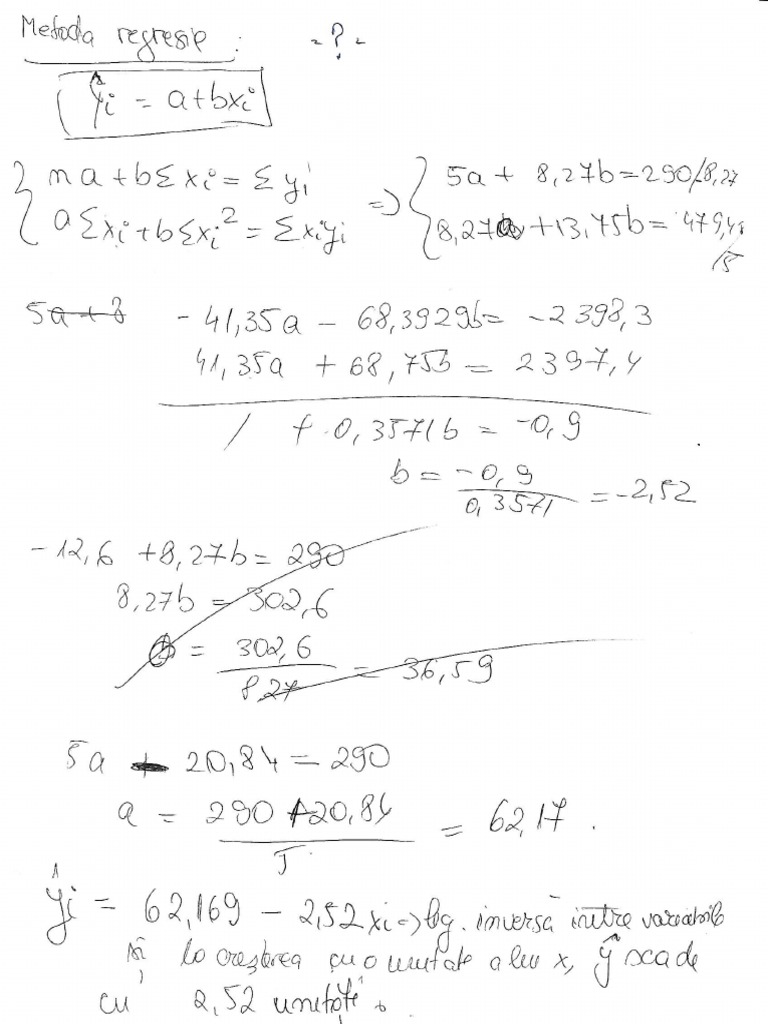 Metoda regresie : - ? -
ŷi = a+bxi
{ na + bΣxi = Σyi => { 5a + 8,27b = 290 /8,27
aΣxi + bΣxi² = Σxiyi 8,27a + 13,75b = 479,48 /5
5a + 8 - 41,35a - 68,3929b = -2398,3
41,35a + 68,75b = 2397,4
/ + 0,3571b = -0,9
b = -0,9 / 0,3571 = -2,52
-12,6 + 8,27b = 290
8,27b = 302,6
b = 302,6 / 8,27 = 36,59
5a - 20,84 = 290
a = 290 + 20,84 / 5 = 62,17.
ŷi = 62,169 - 2,52xi => leg. inversă între variabile
și la creșterea cu o unitate a lui x, ŷ scade
cu 2,52 unități.